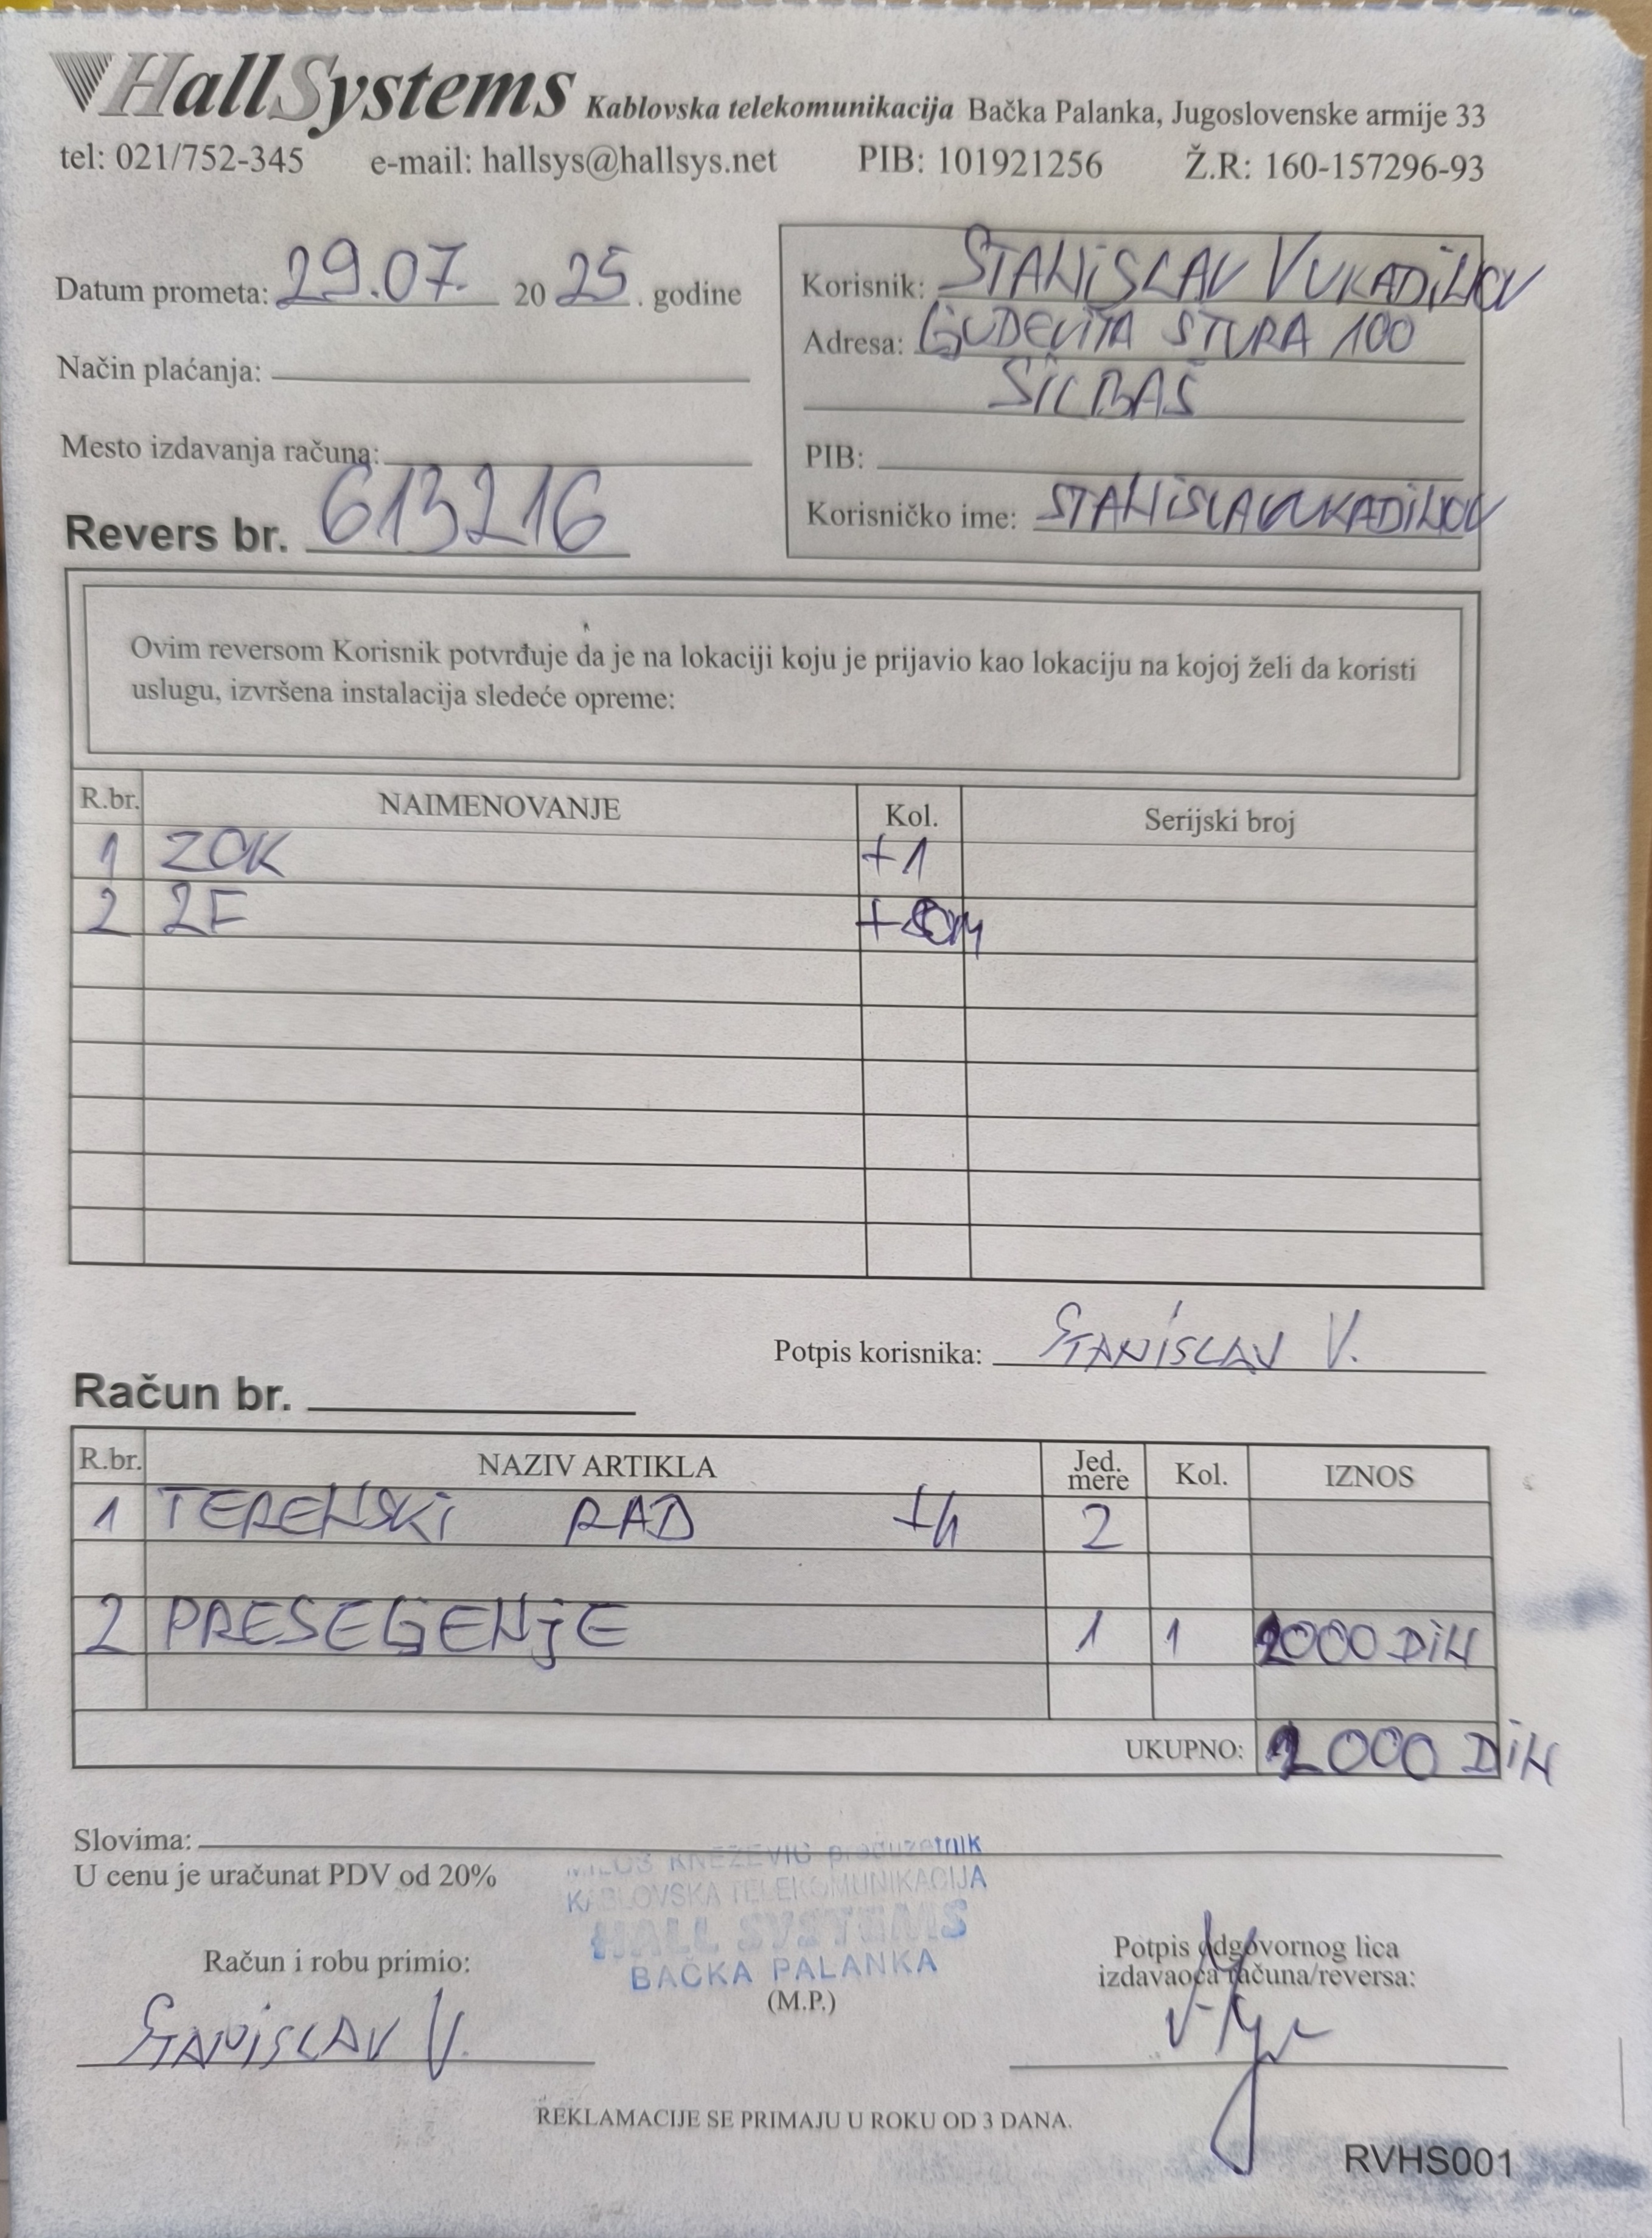 HallSystems Kablovska telekomunikacija Bačka Palanka, Jugoslovenske armije 33
tel: 021/752-345 e-mail: hallsys@hallsys.net PIB: 101921256 Ž.R: 160-157296-93
Datum prometa: 29.07. 2025. godine
Način plaćanja:
Mesto izdavanja računa:
Revers br. 613216
Korisnik: STANISLAV VUKADINOV
Adresa: LJUDEVITA ŠTURA 100
SILBAŠ
PIB:
Korisničko ime: STANISLAVVUKADINOV
Ovim reversom Korisnik potvrđuje da je na lokaciji koju je prijavio kao lokaciju na kojoj želi da koristi
uslugu, izvršena instalacija sledeće opreme:
R.br. NAIMENOVANJE Kol. Serijski broj
1 ZOK +1
2 2F
Potpis korisnika: STANISLAV V.
Račun br.
R.br. NAZIV ARTIKLA Jed. mere Kol. IZNOS
1 TERENSKI RAD 2
2 PRESELJENJE 1 1 2000 DIN
UKUPNO: 2000 DIN
Slovima:
U cenu je uračunat PDV od 20%
MILOŠ KNEŽEVIĆ preduzetnik
KABLOVSKA TELEKOMUNIKACIJA
HALL SYSTEMS
BAČKA PALANKA
(M.P.)
Račun i robu primio:
STANISLAV V.
Potpis odgovornog lica
izdavaoca računa/reversa:
REKLAMACIJE SE PRIMAJU U ROKU OD 3 DANA.
RVHS001